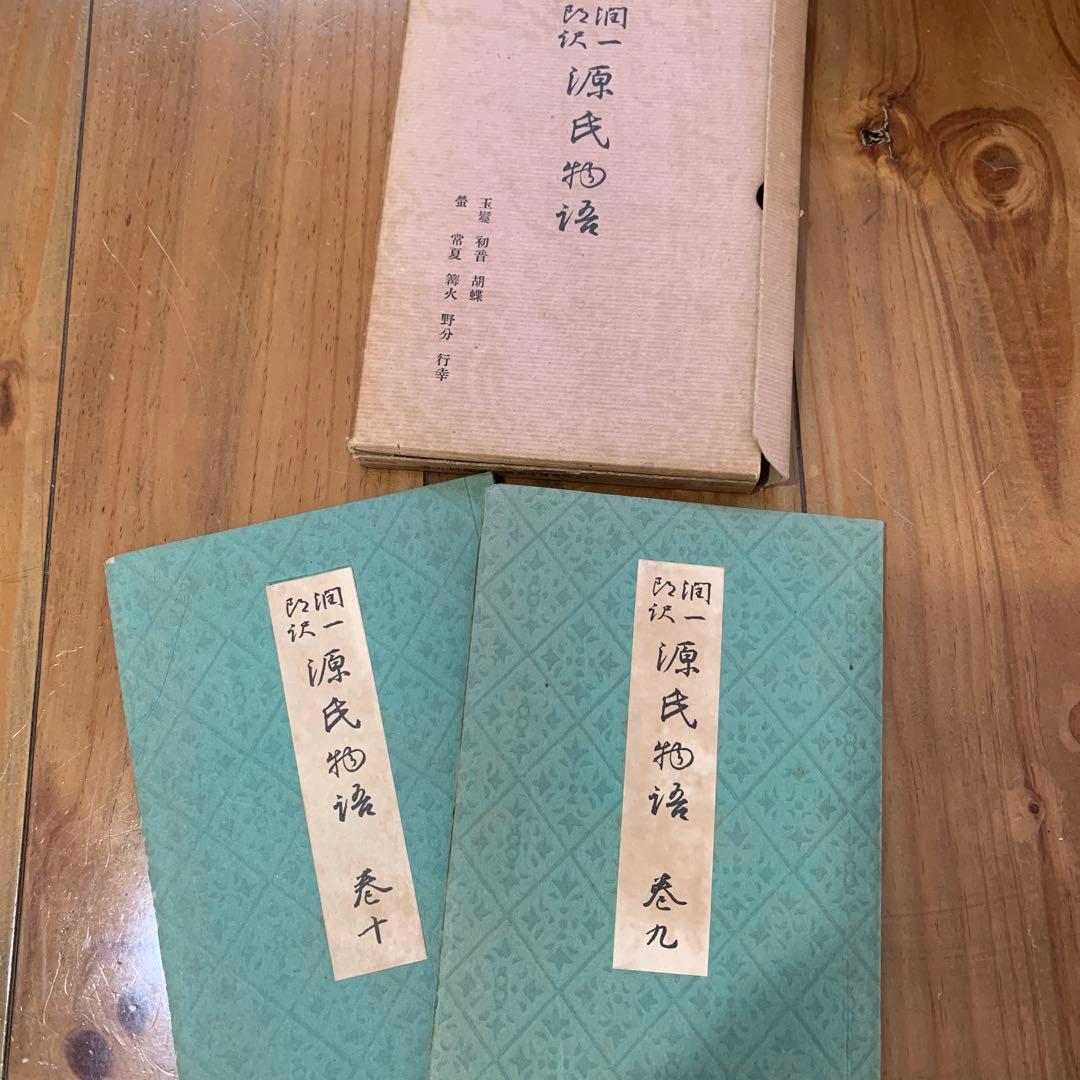 潤一
郎訳
源氏物語
玉鬘 初音 胡蝶
螢 常夏 篝火 野分 行幸
潤一
郎訳
源氏物語 巻十
潤一
郎訳
源氏物語 巻九